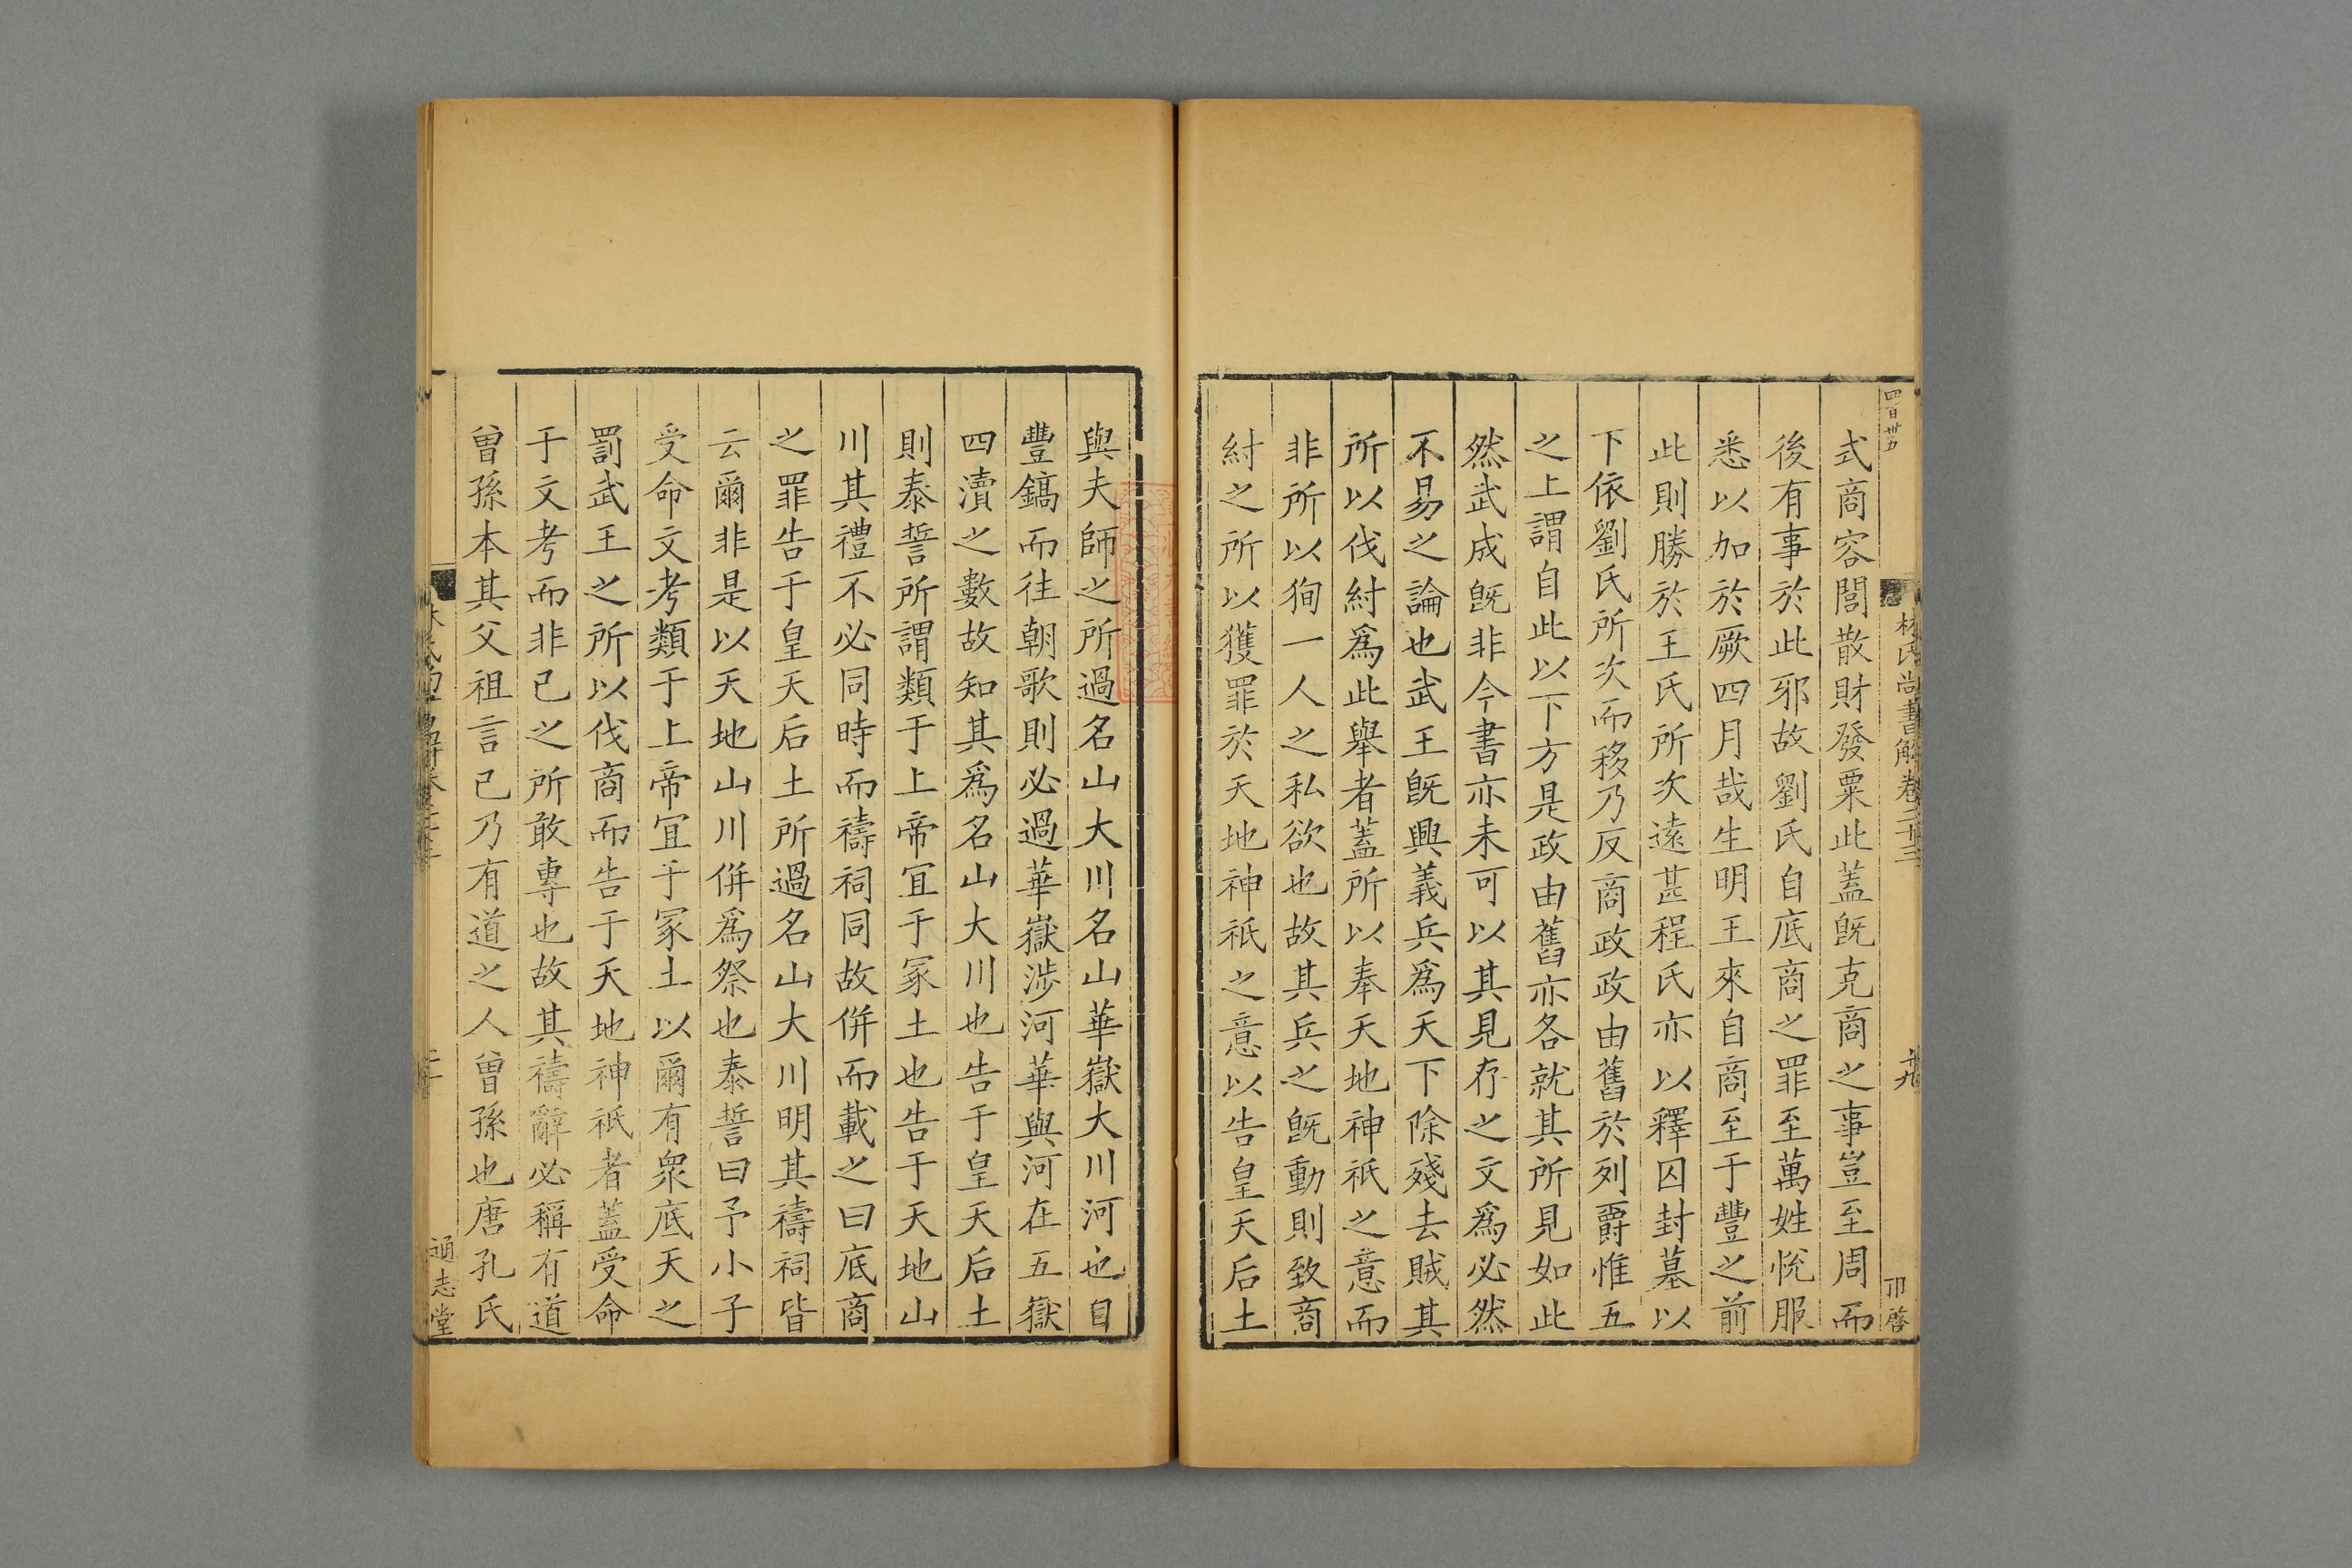 四百卅五
林氏尚書解卷二十三
十九
卬啓
式商容閭散財發粟此蓋旣克商之事豈至周而
後有事於此邪故劉氏自底商之罪至萬姓恱服
悉以加於厥四月哉生明王來自商至于豐之前
此則勝於王氏所次遠甚程氏亦以釋囚封墓以
下依劉氏所次而移乃反商政政由舊於列爵惟五
之上謂自此以下方是政由舊亦各就其所見如此
然武成旣非今書亦未可以其見存之文爲必然
不易之論也武王旣興義兵爲天下除殘去賊其
所以伐紂爲此舉者蓋所以奉天地神祇之意而
非所以狥一人之私欲也故其兵之旣動則致商
紂之所以獲罪於天地神祇之意以告皇天后土
與夫師之所過名山大川名山華嶽大川河也自
豐鎬而往朝歌則必過華嶽涉河華與河在五嶽
四瀆之數故知其爲名山大川也告于皇天后土
則泰誓所謂類于上帝宜于冢土也告于天地山
川其禮不必同時而禱祠同故併而載之曰底商
之罪告于皇天后土所過名山大川明其禱祠皆
云爾非是以天地山川併爲祭也泰誓曰予小子
受命文考類于上帝宜于冢土以爾有衆底天之
罰武王之所以伐商而告于天地神祇者蓋受命
于文考而非己之所敢專也故其禱辭必稱有道
曾孫本其父祖言己乃有道之人曾孫也唐孔氏
通志堂